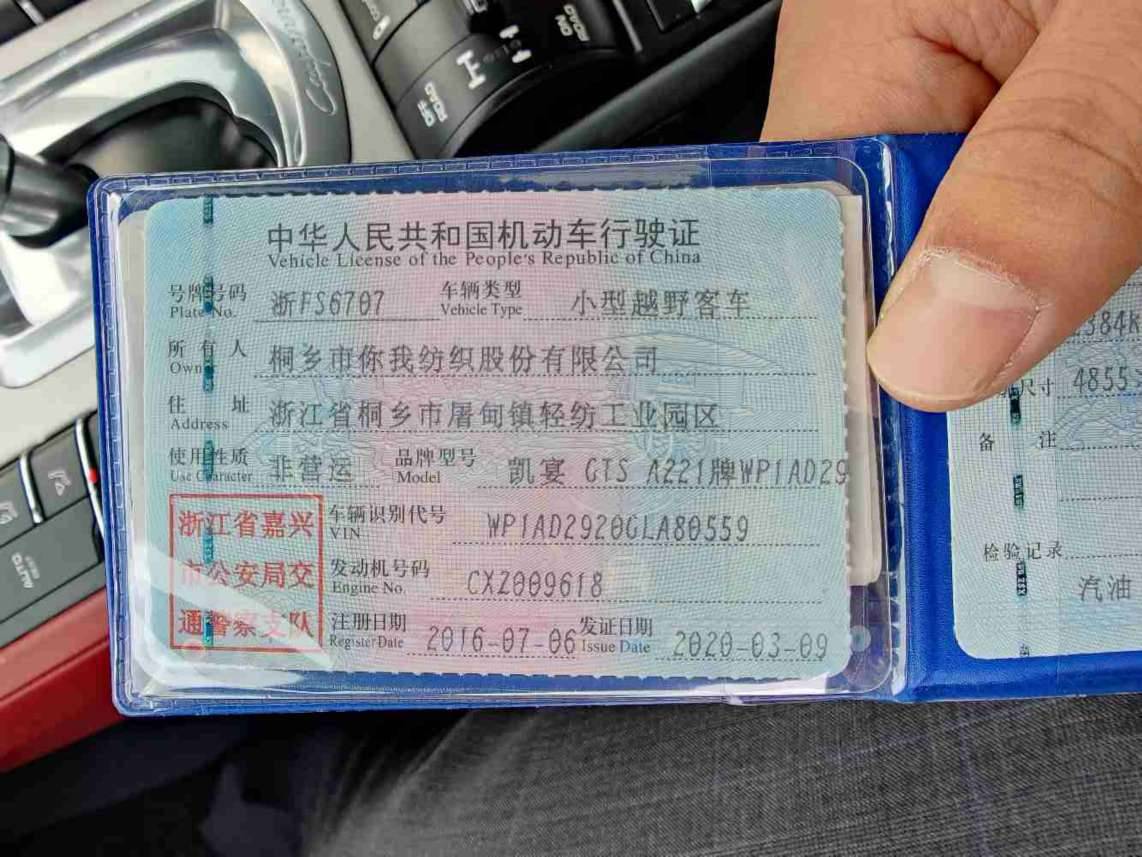 中华人民共和国机动车行驶证
Vehicle License of the People's Republic of China
号牌号码 浙FS6707 车辆类型 小型越野客车
Plate No. Vehicle Type
所有人 桐乡市你我纺织股份有限公司
Owner
住址 浙江省桐乡市屠甸镇轻纺工业园区
Address
使用性质 非营运 品牌型号 凯宴 GTS A221牌WP1AD29
Use Character Model
浙江省嘉兴
市公安局交
通警察支队
车辆识别代号 WP1AD2920GLA80559
VIN
发动机号码 CXZ009618
Engine No.
注册日期 2016-07-06 发证日期 2020-03-09
Register Date Issue Date
尺寸 4855
备注
检验记录
汽油
Cayenne
OFF
ROAD
ON
ROAD